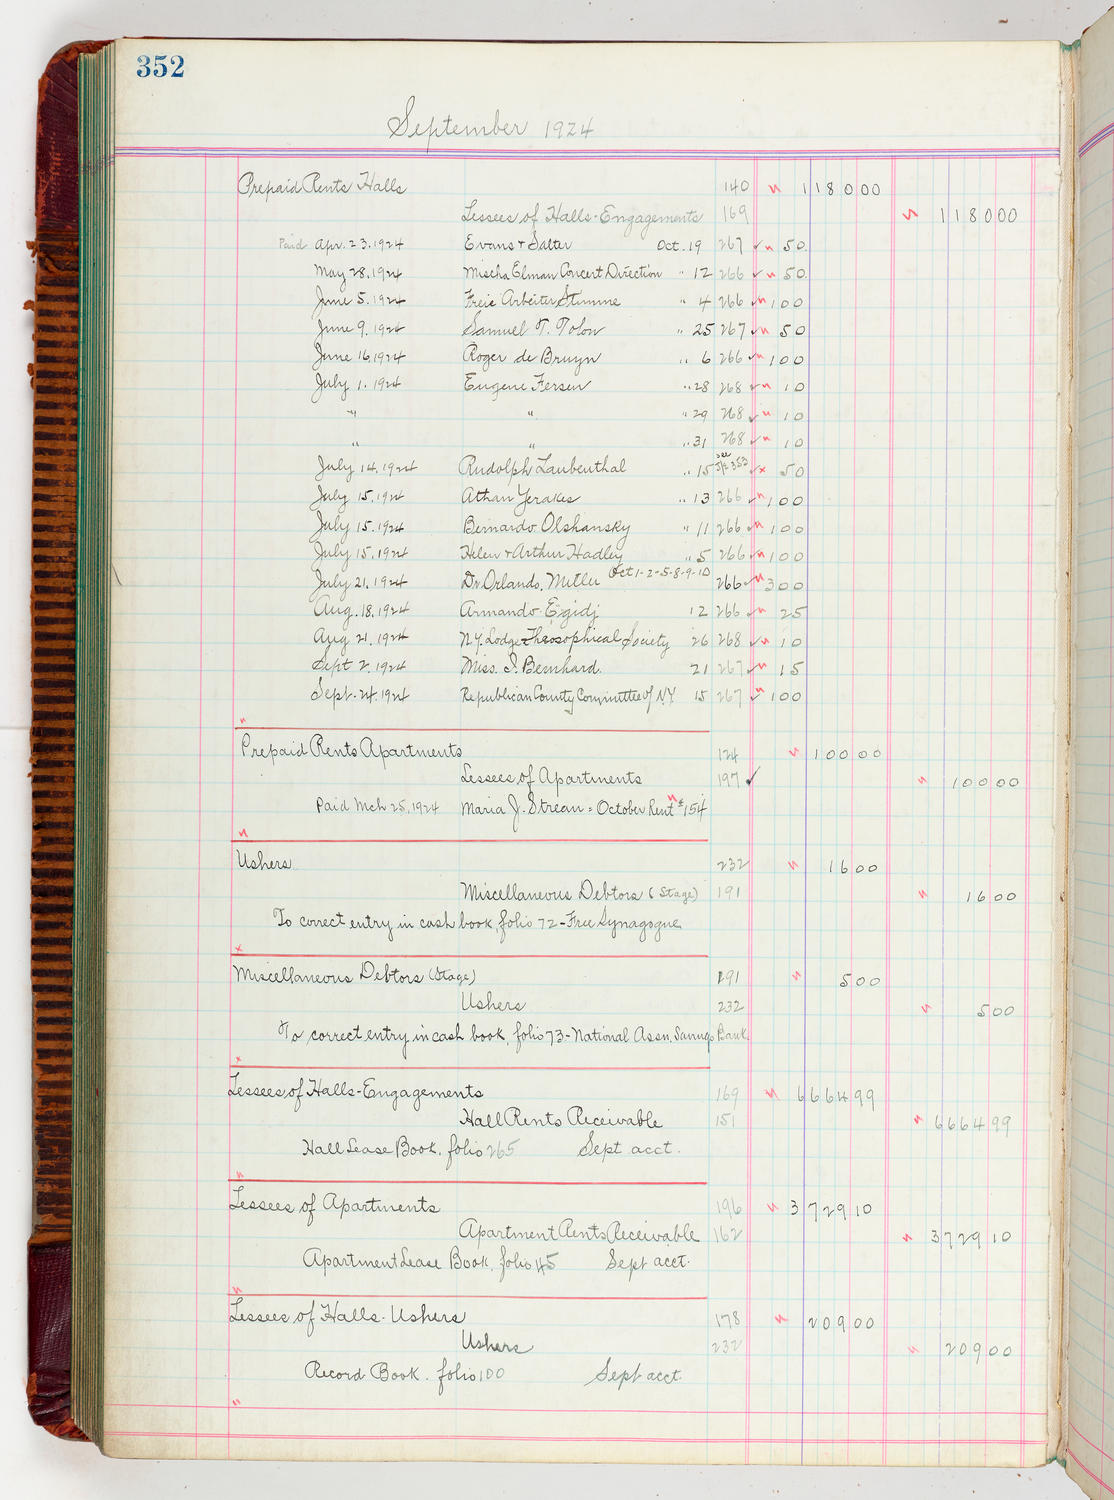 352
September 1924
Prepaid Rents Halls 140 1 1 8 0 0 0
Lessees of Halls-Engagements 169 1 1 8 0 0 0
Paid Apr. 23. 1924 Evans & Salter Oct. 19 267 50
May 28. 1924 Mischa Elman Concert Direction " 12 266 50
June 5. 1924 Freie Arbeiter Stimme " 4 266 100
June 9. 1924 Samuel T. Tolon " 25 267 50
June 16, 1924 Roger de Bruyn " 6 266 100
July 1. 1924 Eugene Fersen " 28 268 10
" " " 29 268 10
" " " 31 268 10
July 14. 1924 Rudolph Laubenthal " 15 see 353 50
July 15. 1924 Athan Yerakes " 13 266 100
July 15. 1924 Bernardo Olshansky " 11 266 100
July 15. 1924 Helen & Arthur Hadley " 5 266 100
July 21. 1924 Dr. Orlando. Oct 1-2-5-8-9-10 266 300
Aug. 18. 1924 Armando Egidj 12 266 25
Aug 21. 1924 N.Y. Lodge Theosophical Society 26 268 10
Sept 2. 1924 Miss. S. Bernhard. 21 267 15
Sept. 24. 1924 Republican County Committee of N.Y. 15 267 100
Prepaid Rents Apartments 124 1 0 0 0 0
Lessees of Apartments 197 1 0 0 0 0
Paid Mch 25, 1924 Maria J. Strean = October Rent #154
Ushers 232 1 6 0 0
Miscellaneous Debtors (Stage) 191 1 6 0 0
To correct entry in cash book, folio 72 - Free Synagogue
Miscellaneous Debtors (Stage) 191 5 0 0
Ushers 232 5 0 0
To correct entry in cash book, folio 73 - National Assn. Savings Bank
Lessees of Halls-Engagements 169 6 6 6 4 9 9
Hall Rents Receivable 151 6 6 6 4 9 9
Hall Lease Book. folio 265 Sept acct.
Lessees of Apartments 196 3 7 2 9 1 0
Apartment Rents Receivable 162 3 7 2 9 1 0
Apartment Lease Book, folio 45 Sept acct.
Lessees of Halls. Ushers 178 2 0 9 0 0
Ushers 232 2 0 9 0 0
Record Book. folio 100 Sept acct.